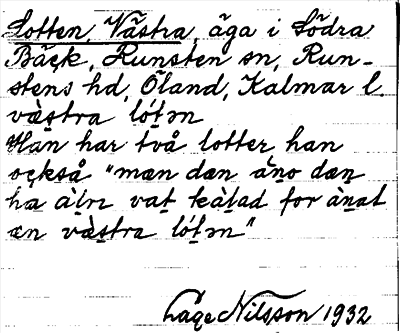 Lotten, Västra, äga i Södra
Bäck, Runsten sn, Run-
stens hd, Öland, Kalmar l.
væ̀s̠tra lót̠ən
Han har två lotter han
också "mæn dæn ǎn̠o dæn̠
hæ àlrɪ vat̠ kàl̠ad for àn̠at
æn væ̀s̠tra lót̠ən"
Lage Nilsson 1932